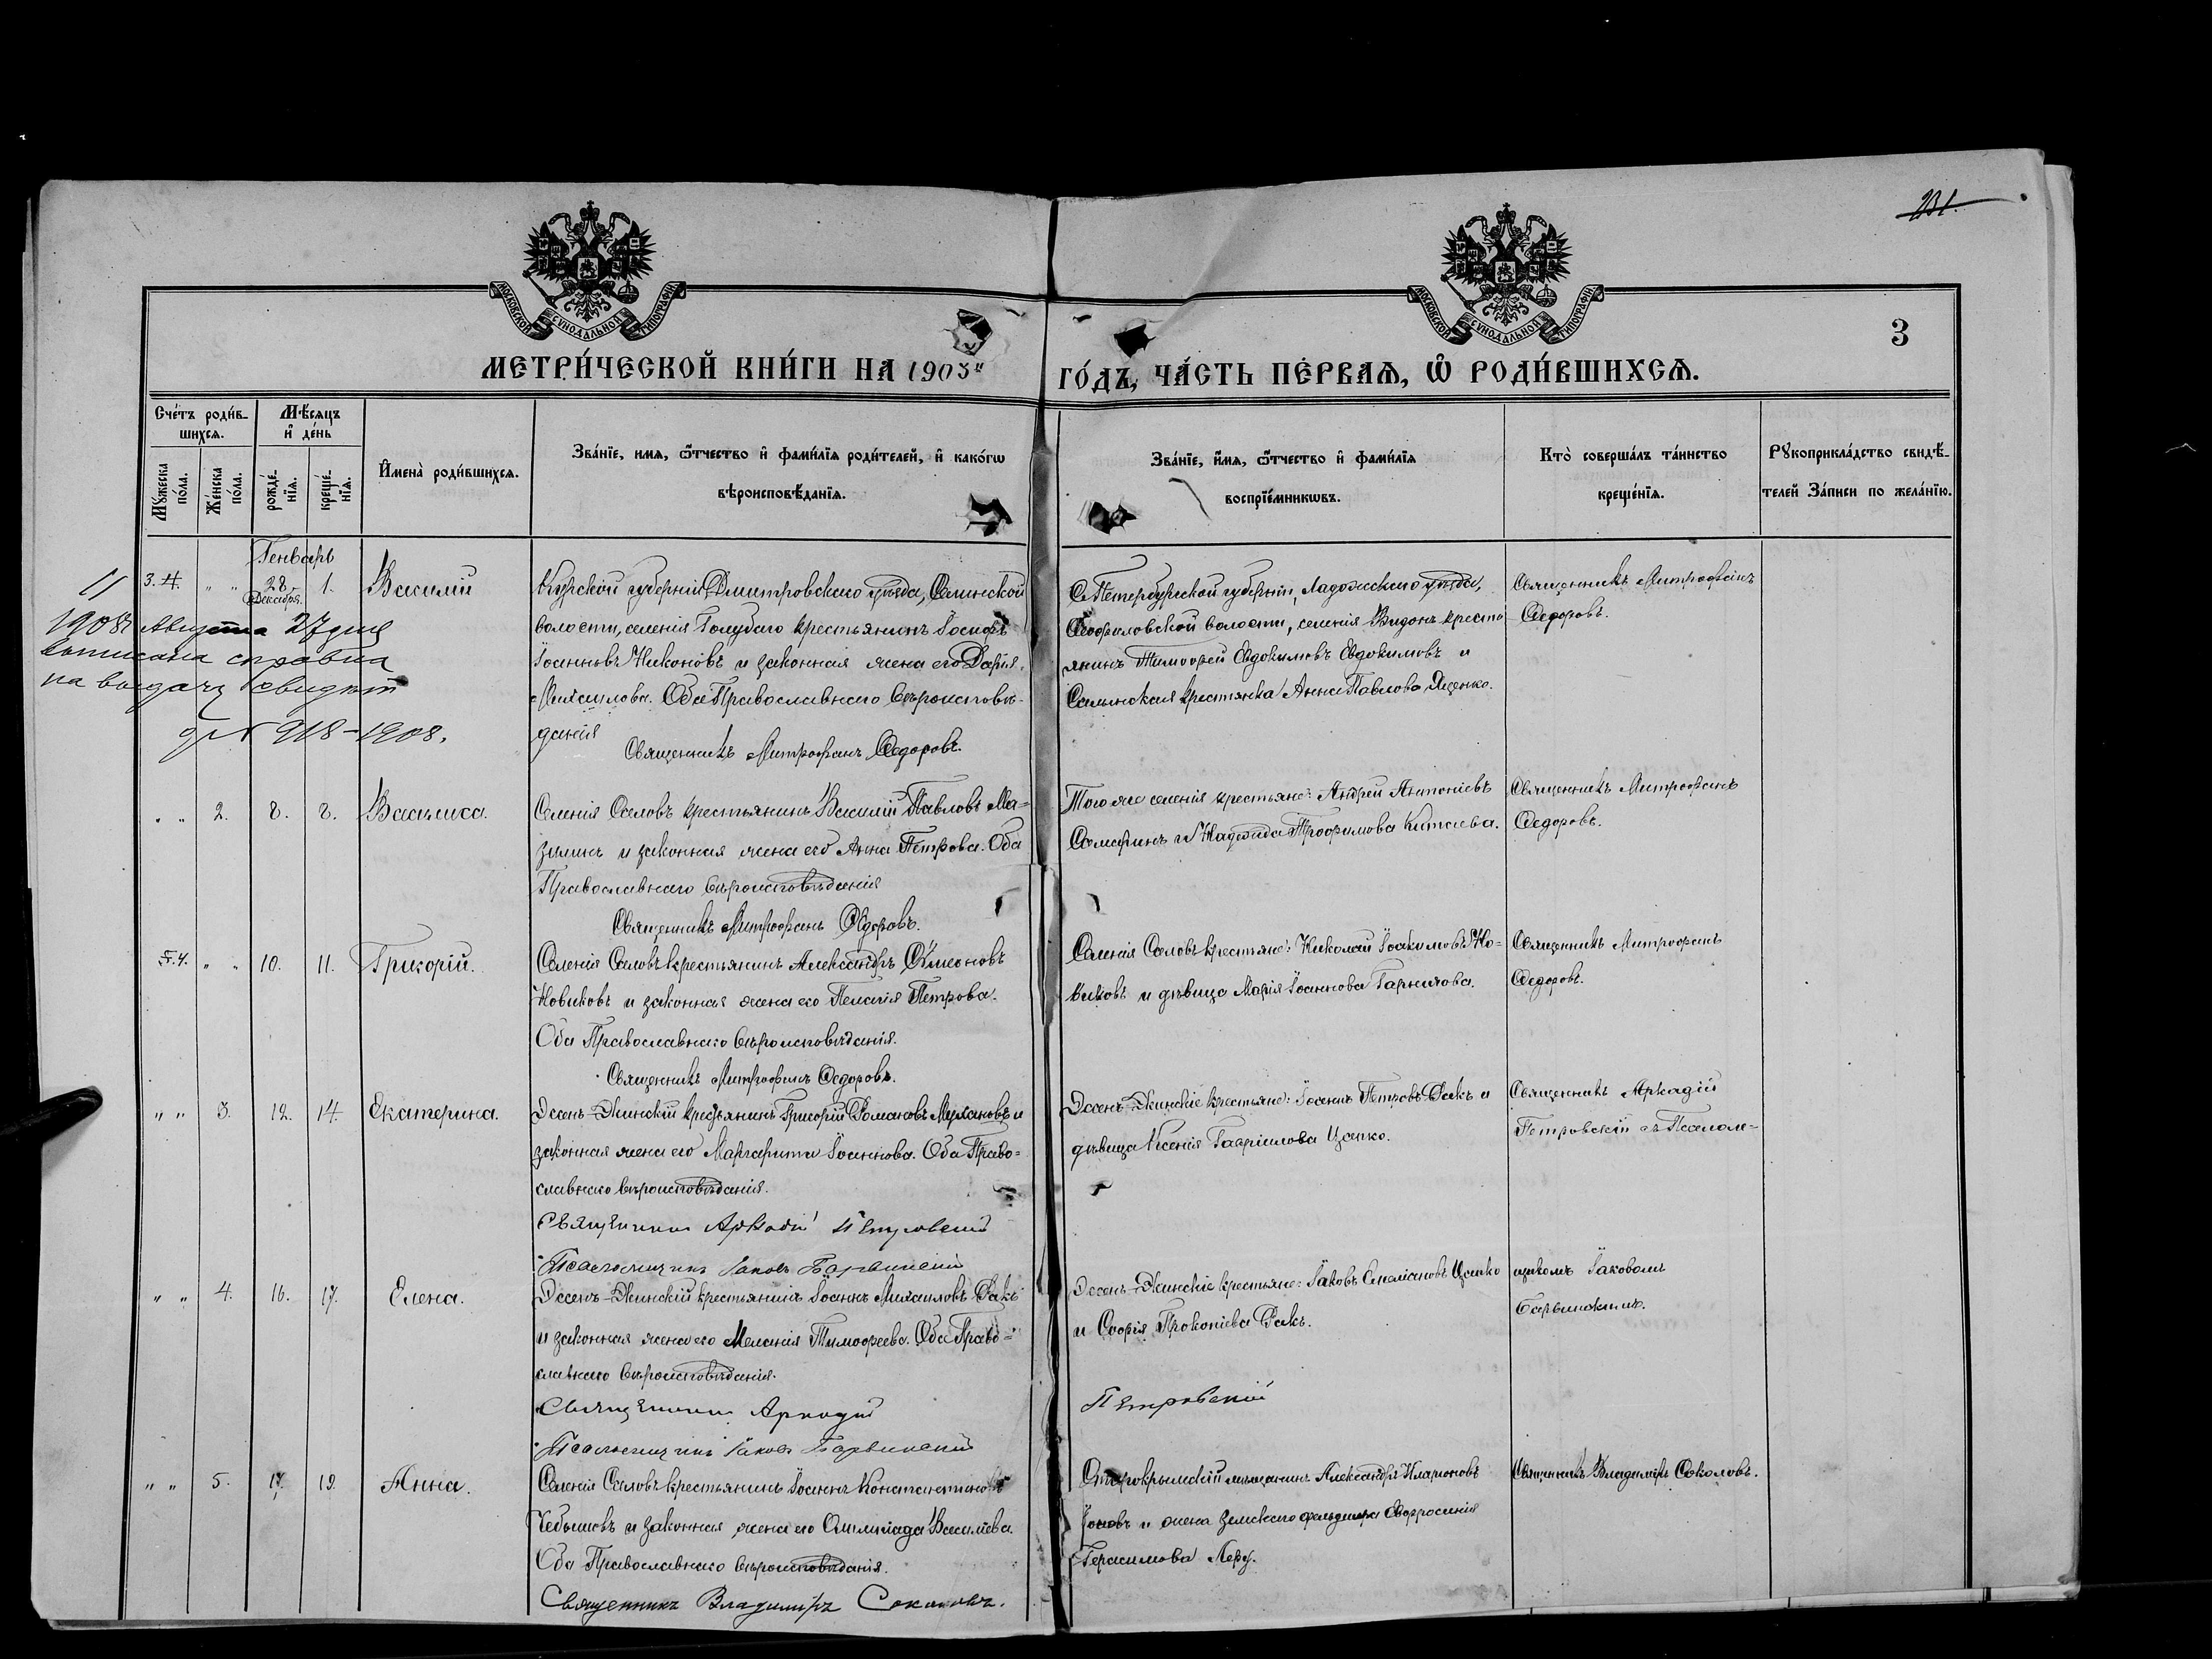 231.
МОСКОВСКОЙ СѴНОДАЛЬНОЙ ТИПОГРАФІИ
МОСКОВСКОЙ СѴНОДАЛЬНОЙ ТИПОГРАФІИ
3
МЕТРИ́ЧЕСКОЙ КНИ́ГИ НА 1903й
ГО́ДЪ, ЧА́СТЬ ПЕ́РВАѦ, Ѡ҆ РОДИ́ВШИХСѦ.
Сче́тъ роди́в-
шихсѧ.
Мꙋ́жеска по́ла.
Же́нска по́ла.
Мѣ́сѧцъ
и҆ де́нь
рожде́-
нїѧ.
креще́-
нїѧ.
И҆мена̀ роди́вшихсѧ.
Зва́нїе, имѧ, ѻ҆́тчество и҆ фами́лїѧ роди́телей, и҆ како́гѡ
вѣроисповѣ́данїѧ.
Зва́нїе, и҆́мѧ, ѻ҆́тчество и҆ фами́лїѧ
воспрїе́мникѡвъ.
Кто̀ соверша́лъ та́инство
креще́нїѧ.
Рꙋкоприкла́дство свидѣ́-
телей За́писи по жела́нїю.
Генварь
3. 4. " " 28 Декабря. 1. Василій
Курской губерніи, Дмитровскаго уѣзда, Селинской
волости, селенія Голубаго крестьянинъ Іосифъ
Іоанновъ Никоновъ и законная жена его Дарія
Михаилова. Оба Православнаго вѣроисповѣ-
данія
Священникъ Митрофанъ Ѳедоровъ.
С.Петербургской губерніи, Ладожскаго уѣзда,
Ѳеофиловской волости, селенія Видонь кресть
янинъ Тимофей Евдокимовъ Евдокимовъ и
крестьянка Анна Павлова Яценко.
Священникъ Митрофанъ
Ѳедоровъ.
11
1908 г. Августа 27 дня
выписана справка
на выдачу свидѣт
д № 918-1908.
" " 2. 8. 8. Василиса.
Селенія Саловъ крестьянинъ Василій Павловъ Ма-
зилинъ и законная жена его Анна Петрова. Оба
Православнаго вѣроисповѣданія
Священникъ Митрофанъ Ѳедоровъ.
Того же селенія крестьяне: Андрей Антоніевъ
и Надежда Трофимова Китаева.
Священникъ Митрофанъ
Ѳедоровъ.
5. 4. " " 10. 11. Григорій.
Селенія Саловъ крестьянинъ Александръ Симеоновъ
Новиковъ и законная жена его Пелагія Петрова.
Оба Православнаго вѣроисповѣданія.
Священникъ Митрофанъ Ѳедоровъ.
Селенія Саловъ крестьяне: Николай Іоакимовъ Но-
виковъ и дѣвица Марія Іоаннова Гарнилова.
Священникъ Митрофанъ
Ѳедоровъ.
" " 3. 12. 14. Екатерина.
Эсенъ-Экинскій крестьянинъ Григорій Романовъ Мухановъ и
законная жена его Маргарита Іоаннова. Оба Право-
славнаго вѣроисповѣданія.
Священникъ Аркадій Петровскій
Псаломщикъ Іаковъ Барвинскій
Эсенъ-Экинскіе крестьяне: Іосифъ Петровъ Ракъ и
дѣвица Ксенія Гавріилова Цапко.
Священникъ Аркадій
Петровскій съ Псалом-
" " 4. 16. 17. Елена.
Эсенъ-Экинскій крестьянинъ Іоаннъ Михаиловъ Ракъ
и законная жена его Меланія Тимофеева. Оба Право-
славнаго вѣроисповѣданія.
Священникъ Аркадій
Петровскій
Псаломщикъ Іаковъ Барвинскій
Эсенъ-Экинскіе крестьяне: Іаковъ Емеліановъ Цапко
и Софія Прокопіева Ракъ.
щикомъ Іаковомъ
Барвинскимъ.
" " 5. 17. 19. Анна.
Селенія Саловъ крестьянинъ Іоаннъ Константиновъ
Чебышевъ и законная жена его Олимпіада Василіева.
Оба Православнаго вѣроисповѣданія.
Священникъ Владимиръ Соколовъ.
Старокрымскій мѣщанинъ Александръ Иларіоновъ
Іоновъ и жена земскаго фельдшера Евфросинія
Герасимова Леру.
Священникъ Владиміръ Соколовъ.